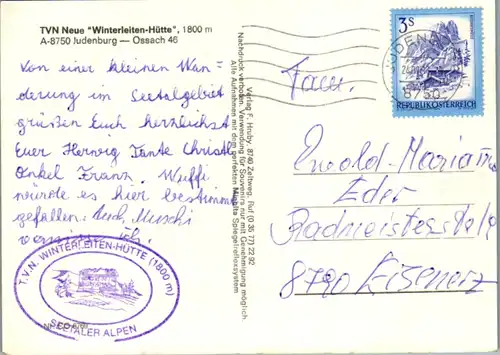 TVN Neue "Winterleiten-Hütte", 1800 m
A-8750 Judenburg — Ossach 46
Von einer kleinen Wan-
derung im Seetalgebiet
grüßen Euch herzlichst
Euer Herwig Tante Christl
Onkel Franz Wuffi
würde es hier bestimmt
gefallen. Auch, Muschi
T.V.N. WINTERLEITEN-HÜTTE (1800 m)
SEETALER ALPEN
Verlag F. Hruby, 8740 Zeltweg, Ruf (0 35 77) 22 92
Nachdruck verboten. Verwendung für Souvenirs nur mit Genehmigung möglich.
Alle Aufnahmen mit dem perfekten Minolta Spiegelreflexsystem
3 S
REPUBLIK ÖSTERREICH
JUDENBURG
8750
Fam.
Ewald-Maria
Eder
Radmeisterstr.
8790 Eisenerz